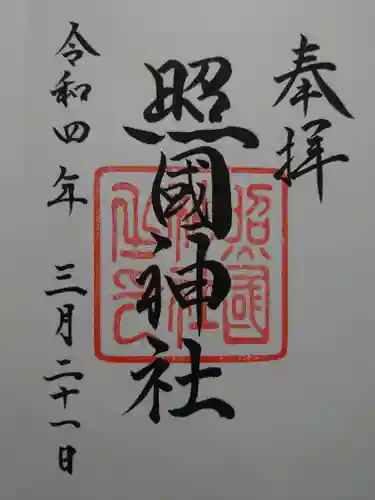 奉拝
照國神社
照國神社之印
令和四年 三月二十一日